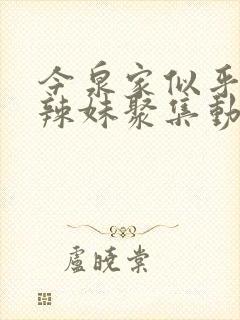 今泉家似乎
辣妹聚集動
盧曉棠